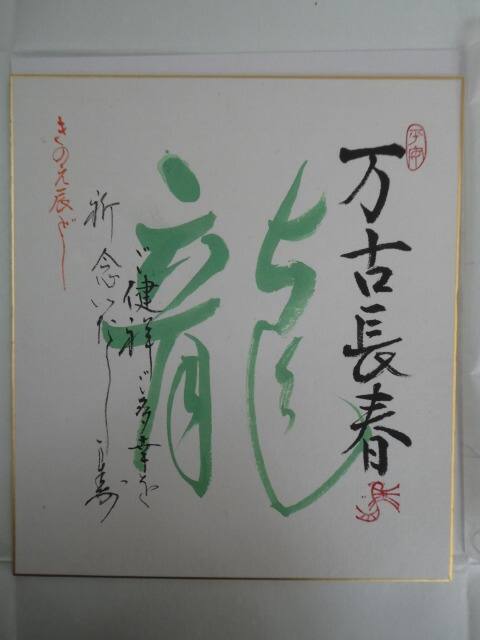 万古長春
龍
ご健祥ご多幸を
祈念いたし
きの元辰どし